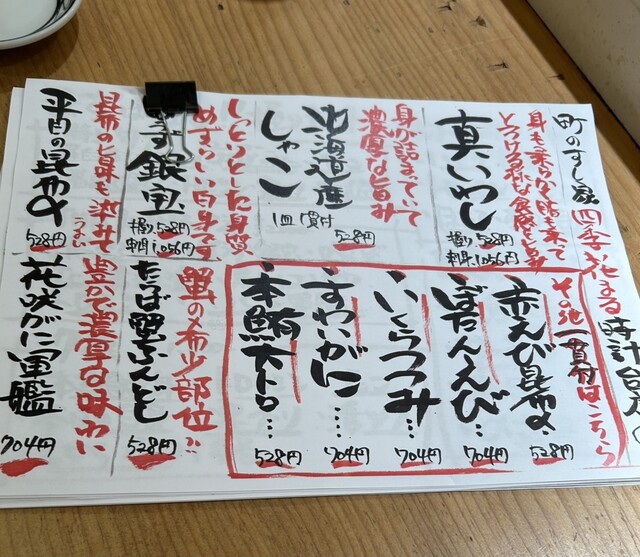 町のすし家 四季花まる 時計台店
身も柔らかく脂も来て
とろける様な食感となる
真いわし
握り 528円
刺身 1,056円
身が詰まっていて
濃厚な旨み
北海道産
しゃこ
1皿 1貫付
528円
しっとりとした身質
めずらしい白身です
銀宝
握り 528円
刺身 1,056円
昆布の旨味も染みて
うまい
平目の昆布〆
528円
その他 一貫付はこちら
赤えび昆〆 528円
ぼたんえび… 704円
いくらつつみ… 704円
すわいがに… 704円
本鮪大トロ… 528円
蟹の希少部位!!
たらば蟹ふんどし
528円
濃厚な味わい
花咲がに軍艦
704円